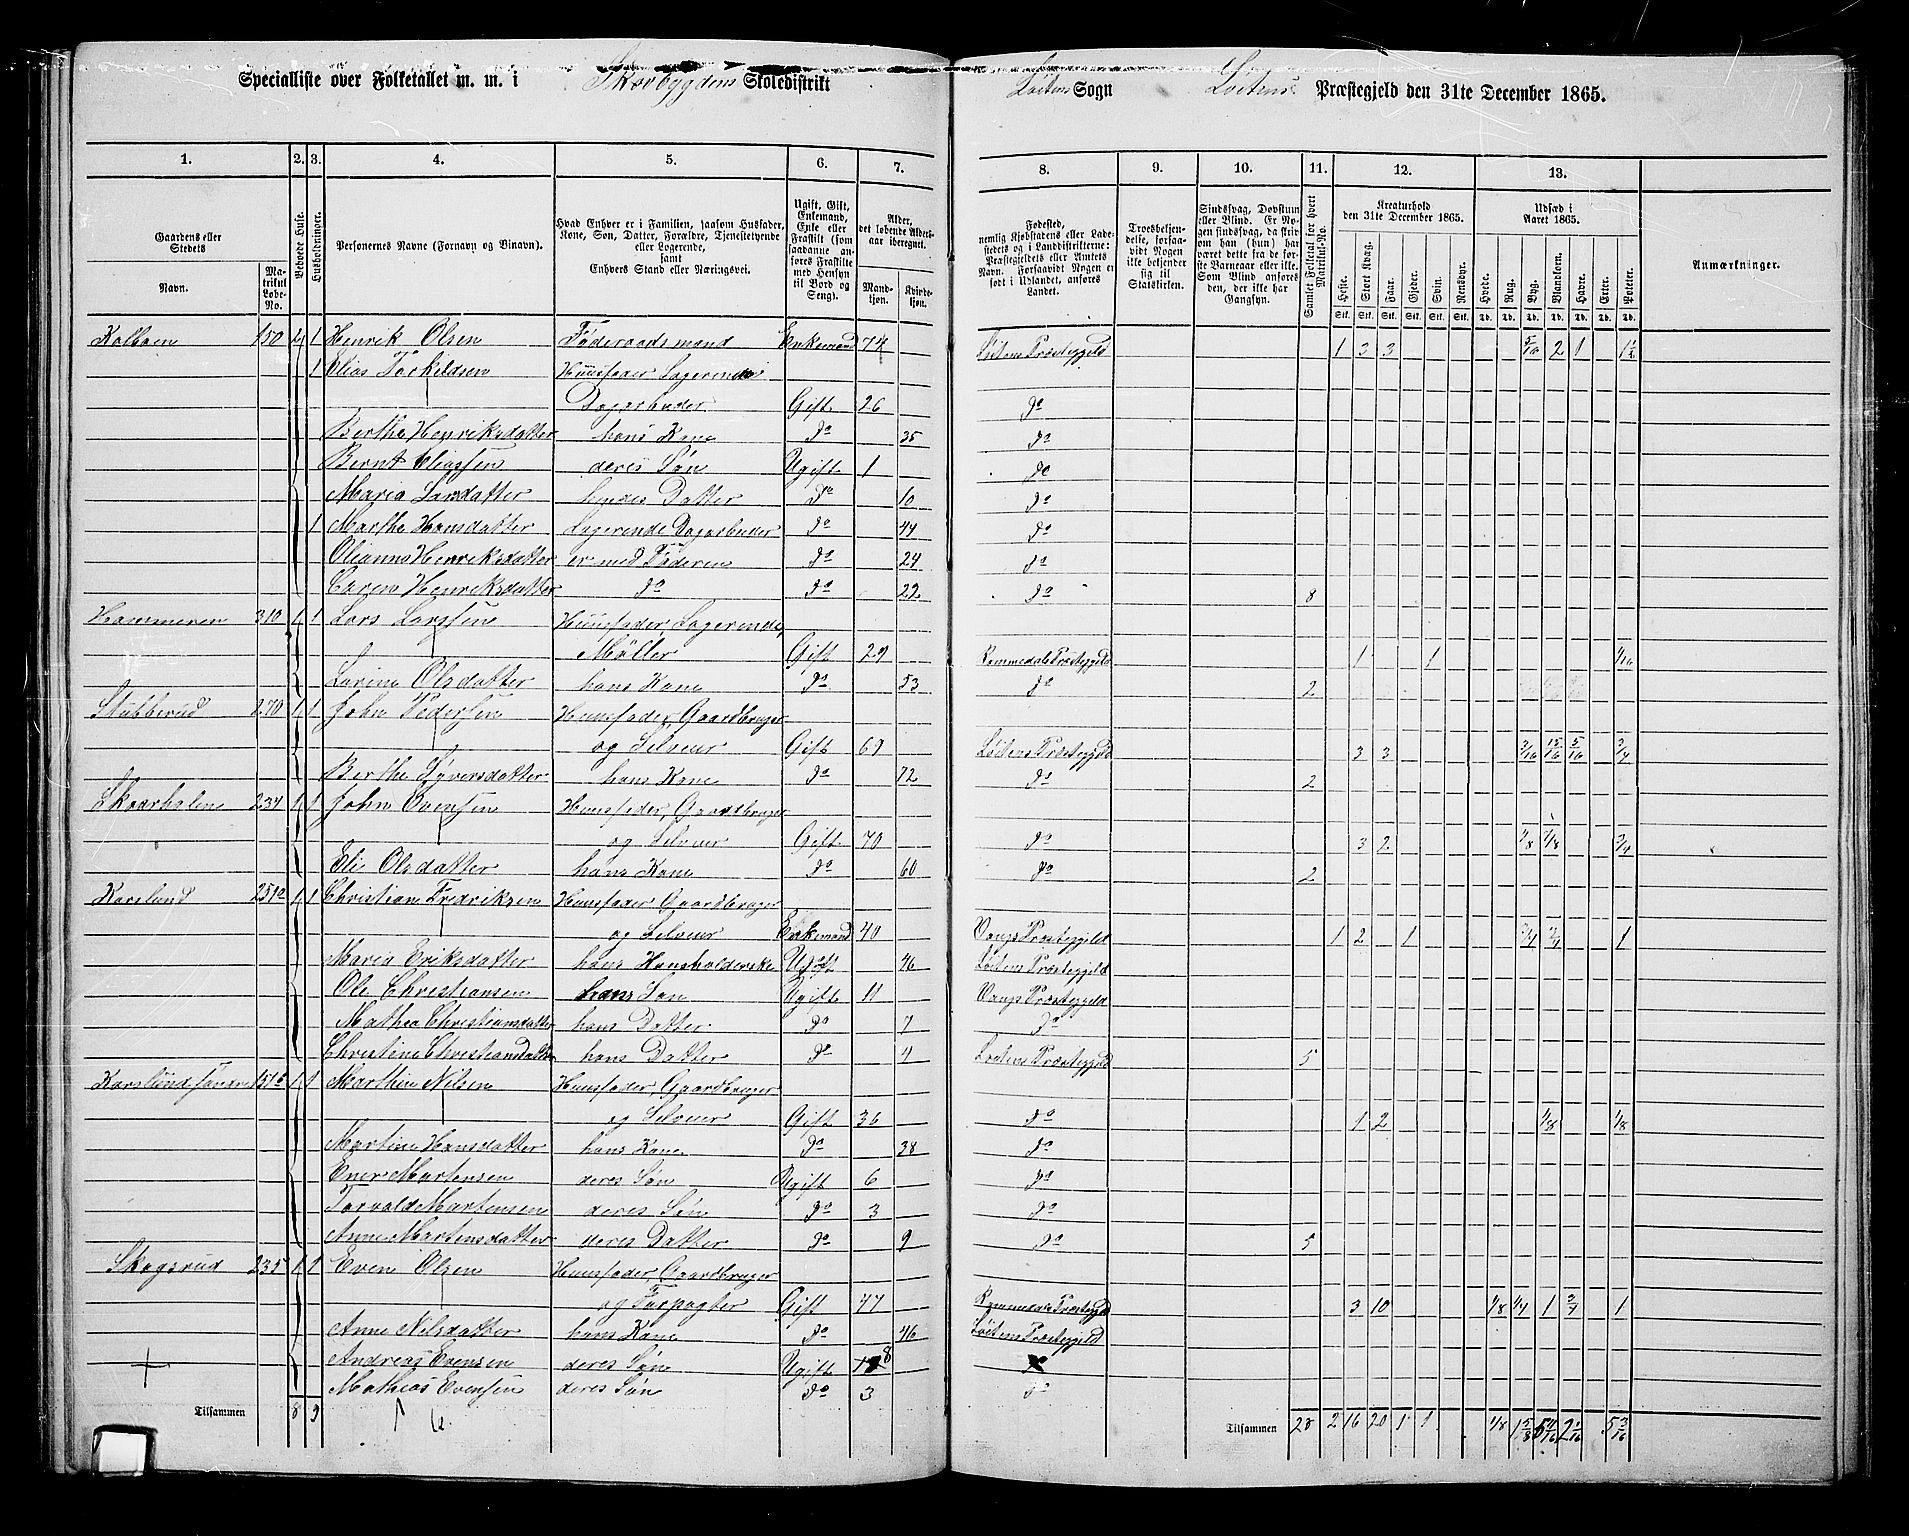 Specialliste over Folketallet m. m. i Skarbygdens Skoledistrikt Løitens Sogn Loitens Præstegjeld den 31te December 1865.
1. 2. 3. 4. 5. 6. 7. 8. 9. 10. 11. 12. 13.
Gaardens eller Stedets Navn. Matrikul Løbe-No. Beboede Huse. Husholdninger. Personernes Navne (Fornavn og Binavn). Hvad Enhver er i Familien, saasom Husfader, Kone, Søn, Datter, Forældre, Tjenestetyende eller Logerende, samt Enhvers Stand eller Næringsvei. Ugift, Gift, Enkemand, Enke eller Fraskilt (som saadanne anføres Fraskilte med Hensyn til Bord og Seng). Alder, det løbende Aldersaar iberegnet. Mandkjøn. Kvindekjøn.
Fødested, nemlig Kjøbstadens eller Ladestedets og i Landdistrikterne: Præstegjeldets eller Amtets Navn. Forsaavidt Nogen er født i Udlandet, anføres Landet. Troesbekjendelse, forsaavidt Nogen ikke bekjender sig til Statskirken. Sindssvag, Døvstum eller Blind. Er Nogen sindssvag, da skrives om han (hun) har været dette fra de første Barneaar eller ikke. Som Blind anføres den, der ikke har Gangsyn. Samlet Folketal for hvert Matrikul-No. Kreaturhold den 31te December 1865. Heste. Stort Kvæg. Faar. Gjeder. Svin. Rensdyr. Udsæd i Aaret 1865. Hvede. Rug. Byg. Blandkorn. Havre. Erter. Poteter. Anmærkninger.
Kolboen 150 4 1 Henrik Olsen Føderaadsmand Enkemand 74 Løitens Præstegjeld 1 3 3 5/10 2 1 1½
1 Elias Torkildsen Huusfader Logerende
Dagarbeder Gift 26 do
Berthe Henriksdatter hans Kone do 35 do
Bernt Eliassen deres Søn Ugift 1 do
Maria Larsdatter hendes Datter do 10 do
1 Marthe Hansdatter Logerende Dagarbeder do 44 do
Olianna Henriksdatter er med Føderen do 24 do
Caren Henriksdatter do do 22 do 8
Hammeren 310 1 1 Lars Larssen Huusfader, Logerende,
Møller Gift 29 Rommedals Præstegjeld 1 1 1/16
Larine Olsdatter hans Kone do 53 do 2
Stubberud 270 1 1 John Pedersen Huusfader, Gaardbruger
og Selveier Gift 69 Løitens Præstegjeld 3 3 3/16 15/16 5/16 3/4
Berthe Syversdatter hans Kone do 72 do 2
Skaarholen 234 1 1 John Evensen Huusfader, Gaardbruger
og Selveier Gift 70 do 3 2 1/8 7/8 3/4
Eli Olsdatter hans Kone do 60 do 2
Karslund 251a 1 1 Christian Fredriksen Huusfader Gaardbruger
og Selveier Enkemand 40 Vangs Præstegjeld 1 2 1 3/4 3/4 1
Maria Eriksdatter hans Huusholderske Ugift 46 Løitens Præstegjeld
Ole Christiansen hans Søn Ugift 11 Vangs Præstegjeld
Mathea Christiansdatter hans Datter do 7 do
Christine Christiansdatter hans Datter do 4 Løitens Præstegjeld 5
1 1 Marthin Nilsen Huusfader, Gaardbruger
og Selveier Gift 36 do 1 2 1/8 1/8
Martine Hansdatter hans Kone do 38 do
Ener Martensen deres Søn Ugift 6 do
Torvald Martensen deres Søn do 3 do
Anne Martensdatter deres Datter do 9 do 5
Skogsrud 235 1 1 Even Olsen Huusfader, Gaardbruger
og Forpagter Gift 47 Rommedals Præstegjeld 3 10 1/8 1/4 1 3/4 1
Anne Nilsdatter hans Kone do 46 Løitens Præstegjeld
Andreas Evensen deres Søn Ugift 8
Mathias Evensen deres Søn do 3 do
Tilsammen 8 9 Tilsammen 28 2 16 20 1 1 1/8 1 5/8 5 11/16 2 1/16 5 3/16